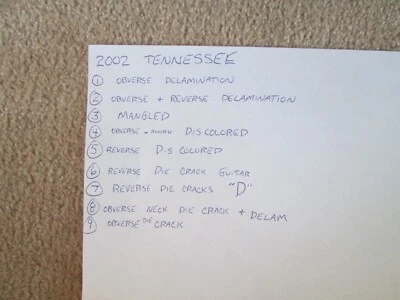 2002 TENNESSEE
① OBVERSE DELAMINATION
② OBVERSE + REVERSE DELAMINATION
③ MANGLED
④ OBVERSE + DISCOLORED
⑤ REVERSE DISCOLORED
⑥ REVERSE DIE CRACK GUITAR
⑦ REVERSE DIE CRACKS "D"
⑧ OBVERSE NECK DIE CRACK + DELAM
⑨ OBVERSE DIE CRACK